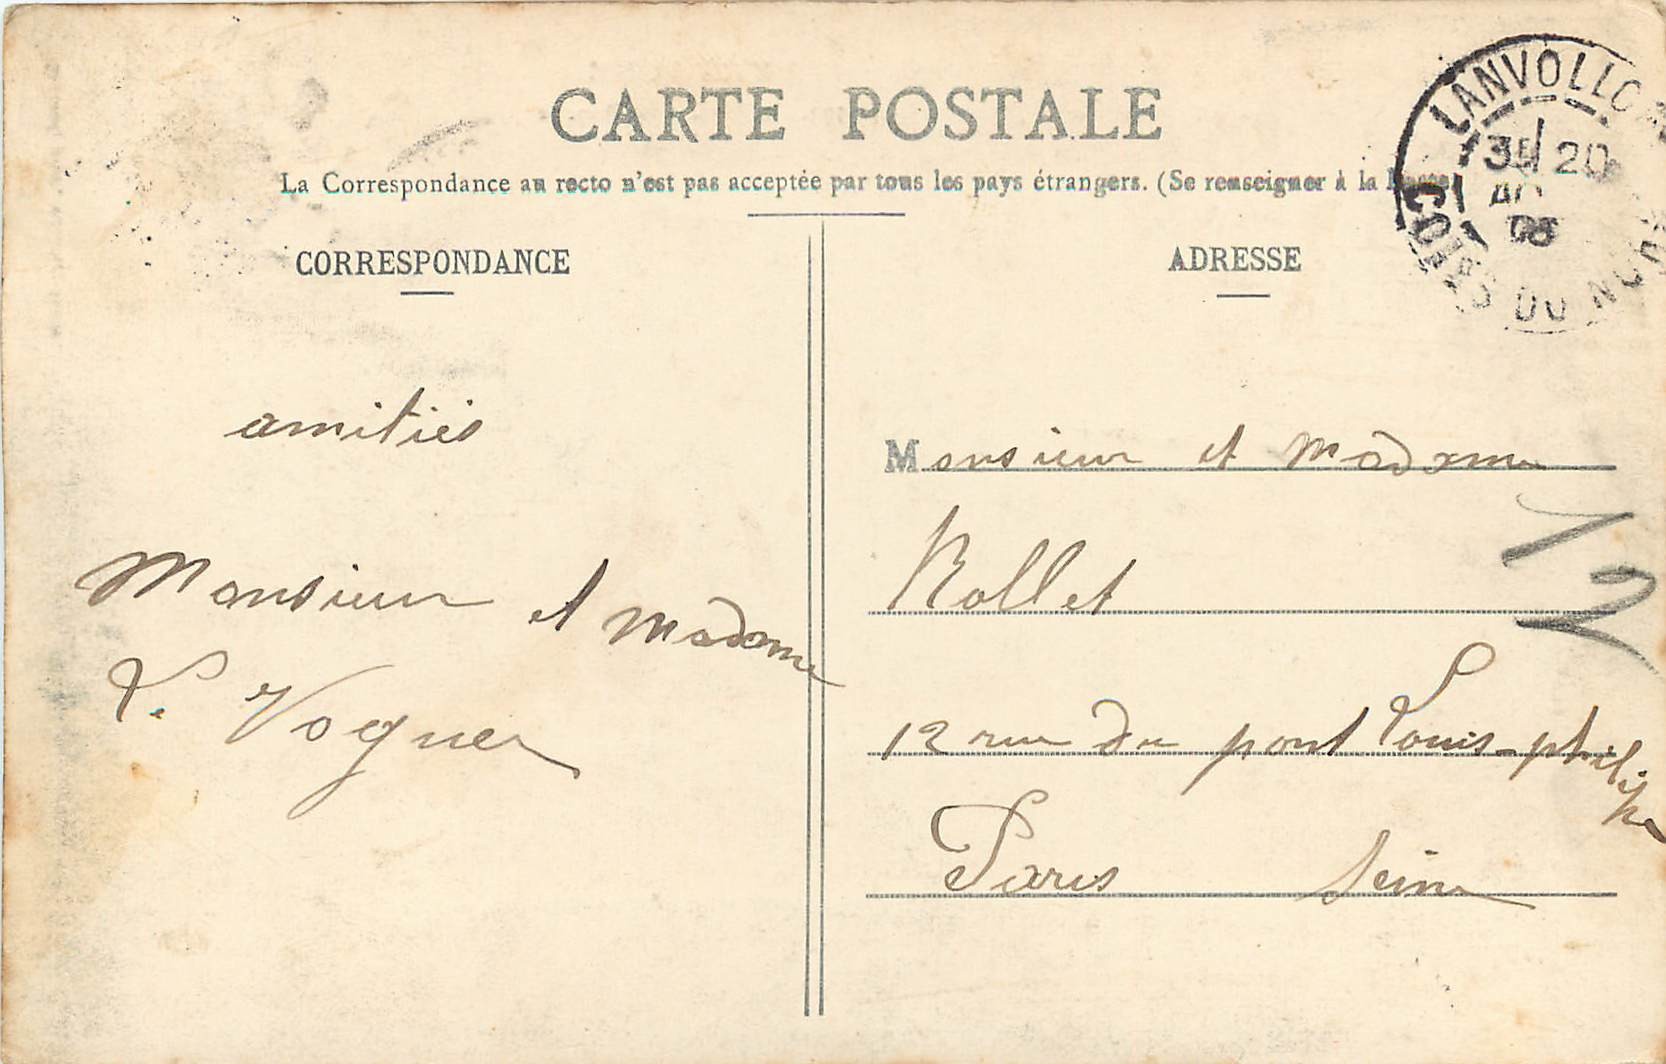 CARTE POSTALE
La Correspondance au recto n'est pas acceptée par tous les pays étrangers. (Se renseigner à la
LANVOLLON
3E 20
COTES DU NORD
CORRESPONDANCE
ADRESSE
amitiés
Monsieur et Madame
L. Vogner
Monsieur et Madame
Rollet
12 rue du pont Louis-philippe
Paris Seine
12